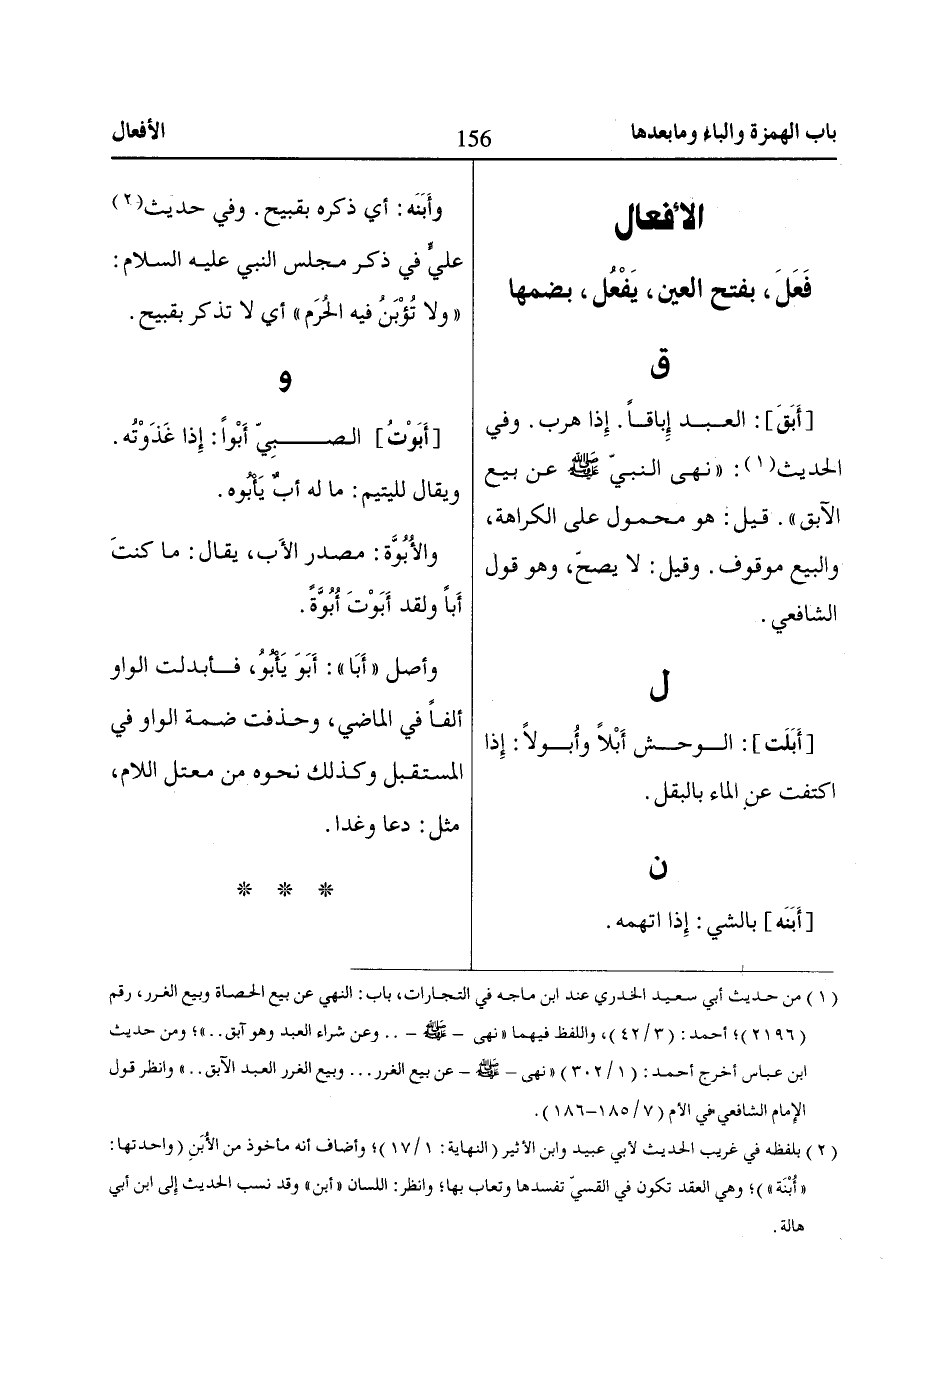 باب الهمزة والباء ومابعدها
156
الأفعال
الأفعال
فَعَلَ، بفتح العين، يَفْعُل، بضمها
ق
[أَبَقَ]: العبد إِباقاً. إِذا هرب. وفي
الحديث(١): «نهى النبيّ ﷺ عن بيع
الآبق». قيل: هو محمول على الكراهة،
والبيع موقوف. وقيل: لا يصحّ، وهو قول
الشافعي.
ل
[أَبَلَت]: الوحش أَبْلاً وأُبولاً: إِذا
اكتفت عن الماء بالبقل.
ن
[أَبَنَه] بالشي: إِذا اتهمه.
وأَبَنَه: أي ذكره بقبيح. وفي حديث(٢)
عليٍّ في ذكر مجلس النبي عليه السلام:
«ولا تُؤْبَنُ فيه الحُرَم» أي لا تذكر بقبيح.
و
[أَبَوْتُ] الصبيّ أَبْواً: إِذا غَذَوْتُه.
ويقال لليتيم: ما له أبٌ يَأْبُوه.
والأُبُوَّة: مصدر الأب، يقال: ما كنتَ
أباً ولقد أَبَوْتَ أُبُوَّةً.
وأصل «أَبَا»: أَبَوَ يَأْبُوُ، فأبدلت الواو
ألفاً في الماضي، وحذفت ضمة الواو في
المستقبل وكذلك نحوه من معتل اللام،
مثل: دعا وغدا.
* * *
(١) من حديث أبي سعيد الخدري عند ابن ماجه في التجارات، باب: النهي عن بيع الحصاة وبيع الغرر، رقم
(٢١٩٦)؛ أحمد: (٣/٤٢)، واللفظ فيهما «نهى - ﷺ - .. وعن شراء العبد وهو آبق..»؛ ومن حديث
ابن عباس أخرج أحمد: (١/٣٠٢) «نهى - ﷺ - عن بيع الغرر... وبيع الغرر العبد الآبق..» وانظر قول
الإمام الشافعي في الأم (٧/١٨٥-١٨٦).
(٢) بلفظه في غريب الحديث لأبي عبيد وابن الأثير (النهاية: ١/١٧)؛ وأضاف أنه مأخوذ من الأُبَنِ (واحدتها:
«أُبْنَة»)؛ وهي العقد تكون في القسيّ تفسدها وتعاب بها؛ وانظر: اللسان «أبن» وقد نسب الحديث إلى ابن أبي
هالة.